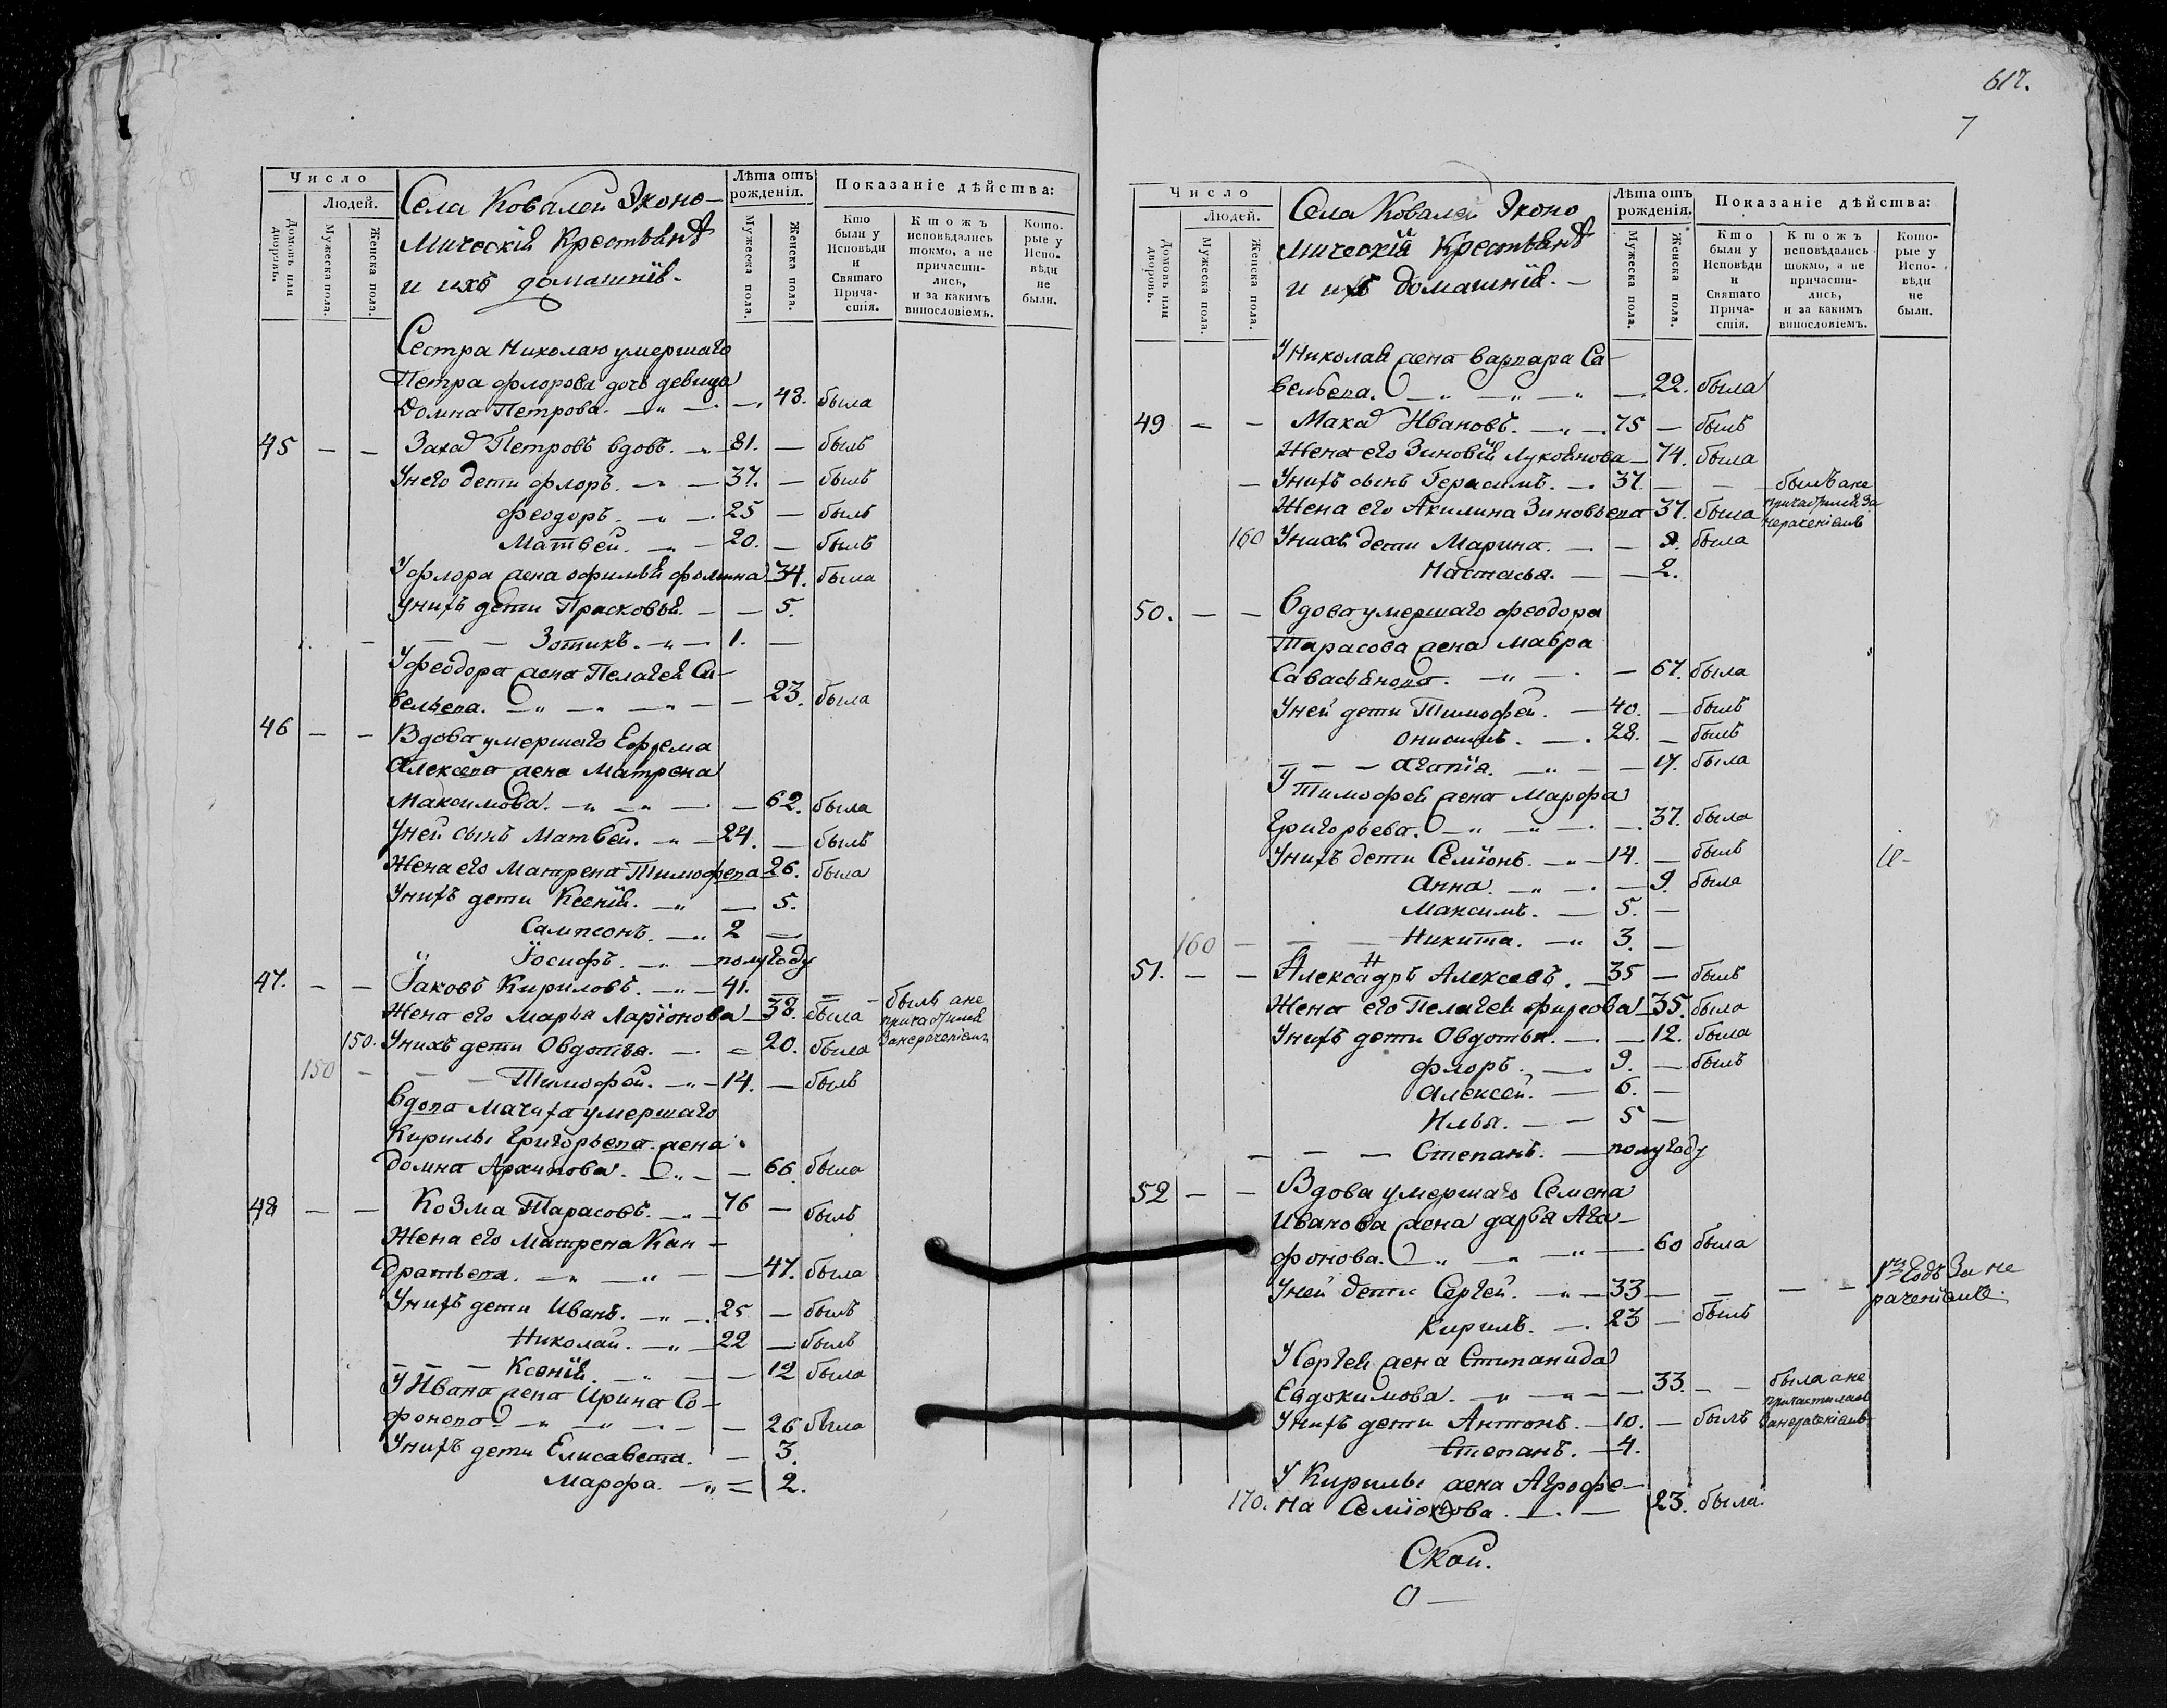 Число
Людей.
Домовъ или дворовъ.
Мужеска пола.
Женска пола.
Села Ковалей Эконо-
мическiя Крестьянѣ
и ихъ домашнiя.
Лѣта отъ рожденiя.
Мужеска пола.
Женска пола.
Показанiе дѣйства:
Кто были у Исповѣди и Святаго Причастiя.
Ктожъ исповѣдались токмо, а не причастились, и за какимъ винословiемъ.
Которые у Исповѣди не были.
Сестра Николаю умершаго
Петра флорова дочь девица
Домна Петрова. — — 43. была
45 — — Петровъ вдовъ. — 81. — былъ
Унего дети флоръ. — — 37. — былъ
феодоръ. — — 25 — былъ
Матвей. — — 20. — былъ
Уфлора жена офимья фомина 34. была
Унихъ дети Прасковья. — — 5.
— — Зотикъ. — — 1. —
Уфеодора жена Пелагея Са-
вельева. — — — — 23. была
46 — — Вдова умершаго Ефрема
Алексева жена Матрена
Максимова. — — — — 62. была
Уней сынъ Матвей. — — 24. — былъ
Жена его Матрена Тимофева 26. была
Унихъ дети Ксенiя. — — 5.
Сампсонъ. — 2 —
Iосифъ. — — полугоду
47. — — Iаковъ Кириловъ. — — 41. — — былъ ане
Жена его Марья Ларiонова — 38. была причастился
150. Унихъ дети Овдотья. — — 20. была занерачениемъ
150 — — — Тимофей. — — 14. — былъ
Вдова Мачиха умершаго
Кирилы Григорьева жена
Домна Архипова. — — 66. была
48 — — Козма Тарасовъ. — — 76 — былъ
Жена его Матрена Кан-
дратьева. — — — — 47. была
Унихъ дети Иванъ. — — 25 — былъ
Николай. — — 22 — былъ
— — — Ксенiя. — — — 12 была
У Ивана жена Ирина Со-
фонова — — — — 26 была
Унихъ дети Елисавета. — 3.
Марфа. — — 2.
617.
7
Число
Людей.
Домовъ или дворовъ.
Мужеска пола.
Женска пола.
Села Ковалей Эконо
мическiя Крестьянѣ
и ихъ домашнiя. —
Лѣта отъ рожденiя.
Мужеска пола.
Женска пола.
Показанiе дѣйства:
Кто были у Исповѣди и Святаго Причастiя.
Ктожъ исповѣдались токмо, а не причастились, и за какимъ винословiемъ.
Которые у Исповѣди не были.
УНиколая жена варвара Са-
вельева. — — — — 22. была
49 — — Ивановъ. — — 75 — былъ
Жена его Зиновiя Лукоянова — 74. была
— Унихъ сынъ Герасимъ. — 37. — — — былъ ане
Жена его Акилина Зиновьева 37. была причастился за
160 Унихъ дети Марина. — — была нерачениемъ
Настасья. — — 2.
50. — — Вдова умершаго феодора
Тарасова жена Мавра
Савасьянова. — — — 67. была
Уней дети Тимофей. — 40. — былъ
Онисимъ. — 28. — былъ
— — — Агапiя. — — — 17. была
У Тимофея жена Марфа
Григорьева. — — — — 37. была
Унихъ дети Семiонъ. — — 14. — былъ
Анна. — — — 9. была
Максимъ. — 5. —
160 — — — Никита. — 3. —
51. — — Александръ Алексевъ. — 35 — былъ
Жена его Пелагея фирсова — 35. была
Унихъ дети Овдотья. — — 12. была
флоръ. — 9. — былъ
Алексей. — 6. —
Илья. — — 5 —
— — — Степанъ. — полугоду
52 — — Вдова умершаго Семена
Иванова жена дарья Ага-
фонова. — — — — 60 была
Уней дети Сергей. — — 33 — — — — 1й годъ За не
рачениемъ.
Кирилъ. — 23 — былъ
УСергея жена Стипанида
Евдокимова. — — — — 33. — — была ане
причастилась
Унихъ дети Антонъ. — 10. — былъ занерачениемъ
Степанъ. — 4.
У Кирилы жена Агрофе-
170. на Семiонова. — — 23. была.